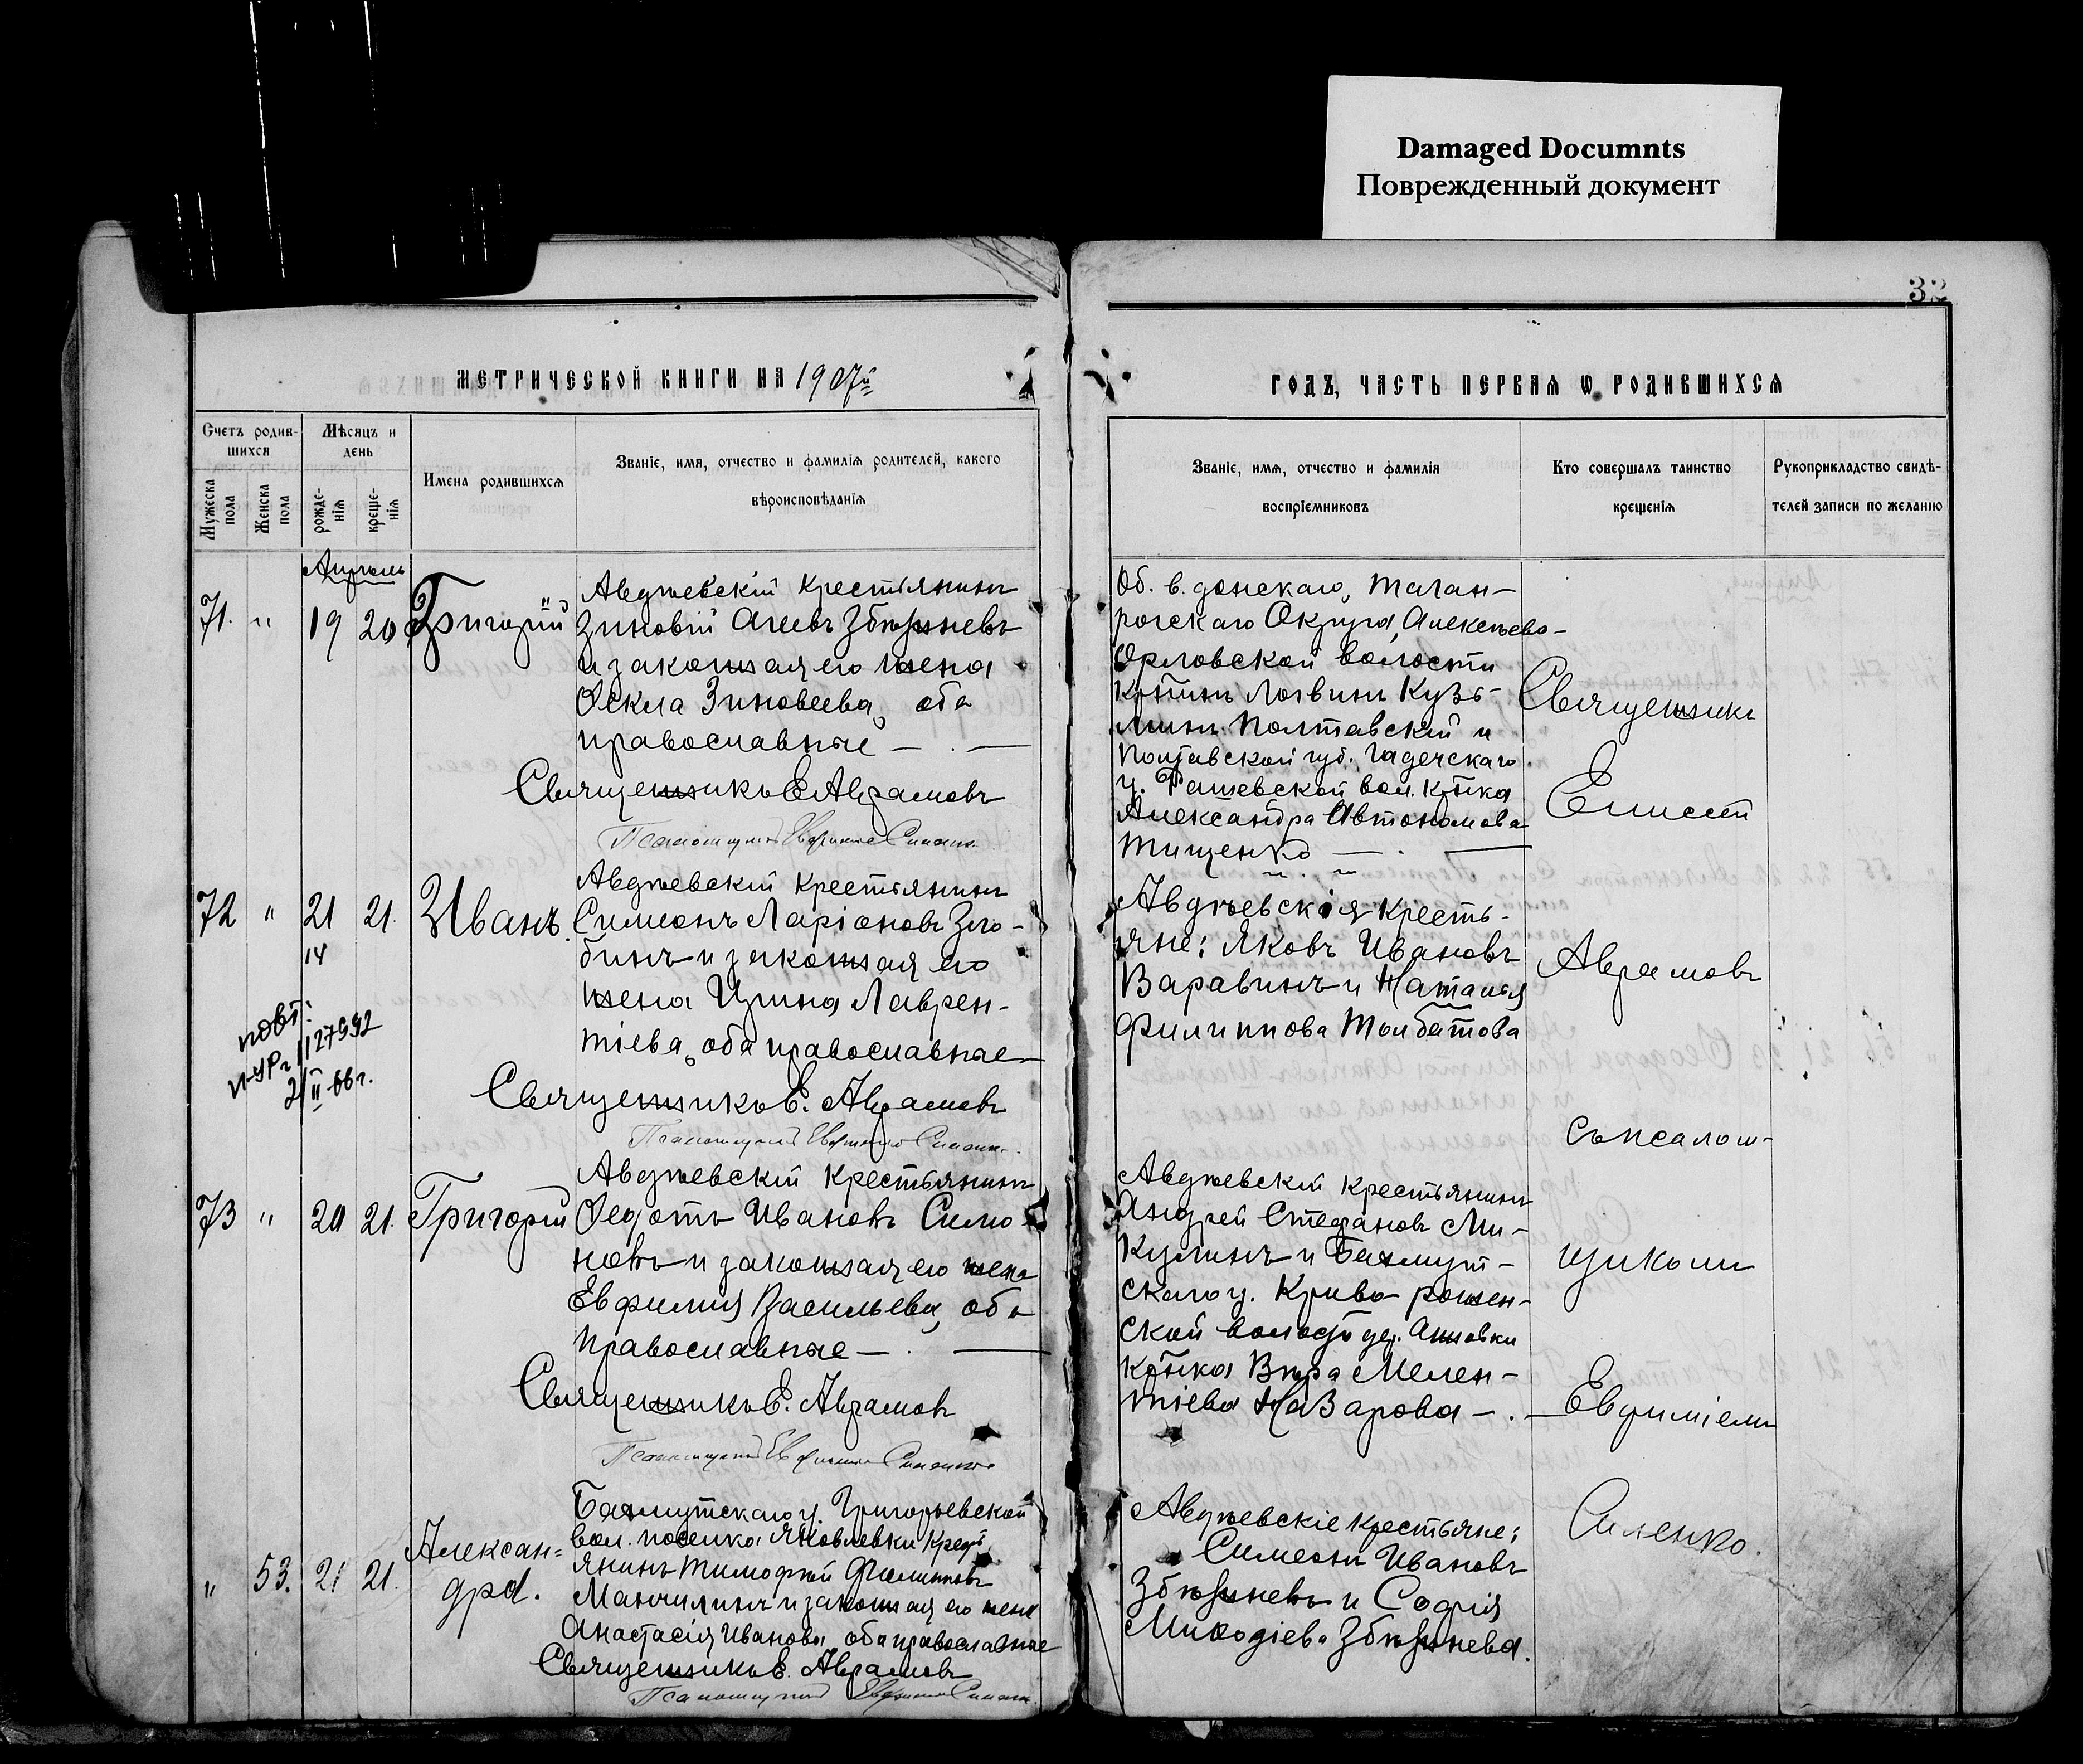 Damaged Documnts
Поврежденный документ
32
МЕТРИЧЕСКОЙ КНИГИ НА 1907й
ГОДЪ, ЧАСТЬ ПЕРВАЯ Ѡ РОДИВШИХСЯ
Счетъ родив-
шихся
Мѣсяцъ и
день
Мужеска
пола
Женска
пола
рожде-
нія
креще-
нія
Имена родившихся
Званіе, имя, отчество и фамилія родителей, какого
вѣроисповѣданія
Званіе, имя, отчество и фамилія
воспріемниковъ
Кто совершалъ таинство
крещенія
Рукоприкладство свидѣ-
телей записи по желанію
Апрель
71. " 19 20 Григорій
Авдѣевскій крестьянинъ
Зиновій Агеевъ Збѣжневъ
и законная его жена
Ѳекла Зиновеева, оба
православные —
Священникъ Е Аврамовъ
Псаломщикъ Евфимій Силенко
Об. в. донскаго, Таган-
рогскаго Округа, Алексѣево-
Орловской волости
кр-нинъ Логвинъ Кузь-
минъ Полтавскій и
Полтавской губ. Гадячскаго
у. Рашевской вол. кр-нка
Александра Автономова
Тищенко —
72 " 21 21. Иванъ.
14
повт.
2/II-66 г.
Авдѣевскій крестьянинъ
Симеонъ Ларіоновъ Зло-
бинъ и законная его
жена Ирина Лаврен-
тіева, оба православные —
Священникъ Е. Аврамовъ
Псаломщикъ Евфимій Силенко
Авдѣевскія кресть-
яне: Яковъ Ивановъ
Варавинъ и Наталья
Филиппова Толбатова
73 " 20 21. Григорій
Авдѣевскій крестьянинъ
Ѳедотъ Ивановъ Симо-
новъ и законная его жена
Евфимия Васильева, оба
православные —
Священникъ Е. Аврамовъ
Псаломщикъ Евфимій Силенко
Авдѣевскій крестьянинъ
Андрей Стефановъ Ми-
кулинъ и Бахмут-
скаго у. Криво-рожен-
ской волости дер.
кр-нка Вѣра Мелен-
тіева Назарова —
" 53. 21 21. Алексан-
дра.
Бахмутскаго у. Григорьевской
вол. поселка Яковлевки крест-
янинъ Тимофей Филиповъ
Манчилинъ и законная его жена
Анастасія Иванова, оба православные
Священникъ Е. Аврамовъ
Псаломщикъ Евфимій Силенко
Авдѣевскіе крестьяне:
Симеонъ Ивановъ
Збѣжневъ и Софія
Миѳодіева Збѣжнева.
Священникъ
Елисей
Аврамовъ
съ псалом-
щикомъ
Евфиміемъ
Силенко.